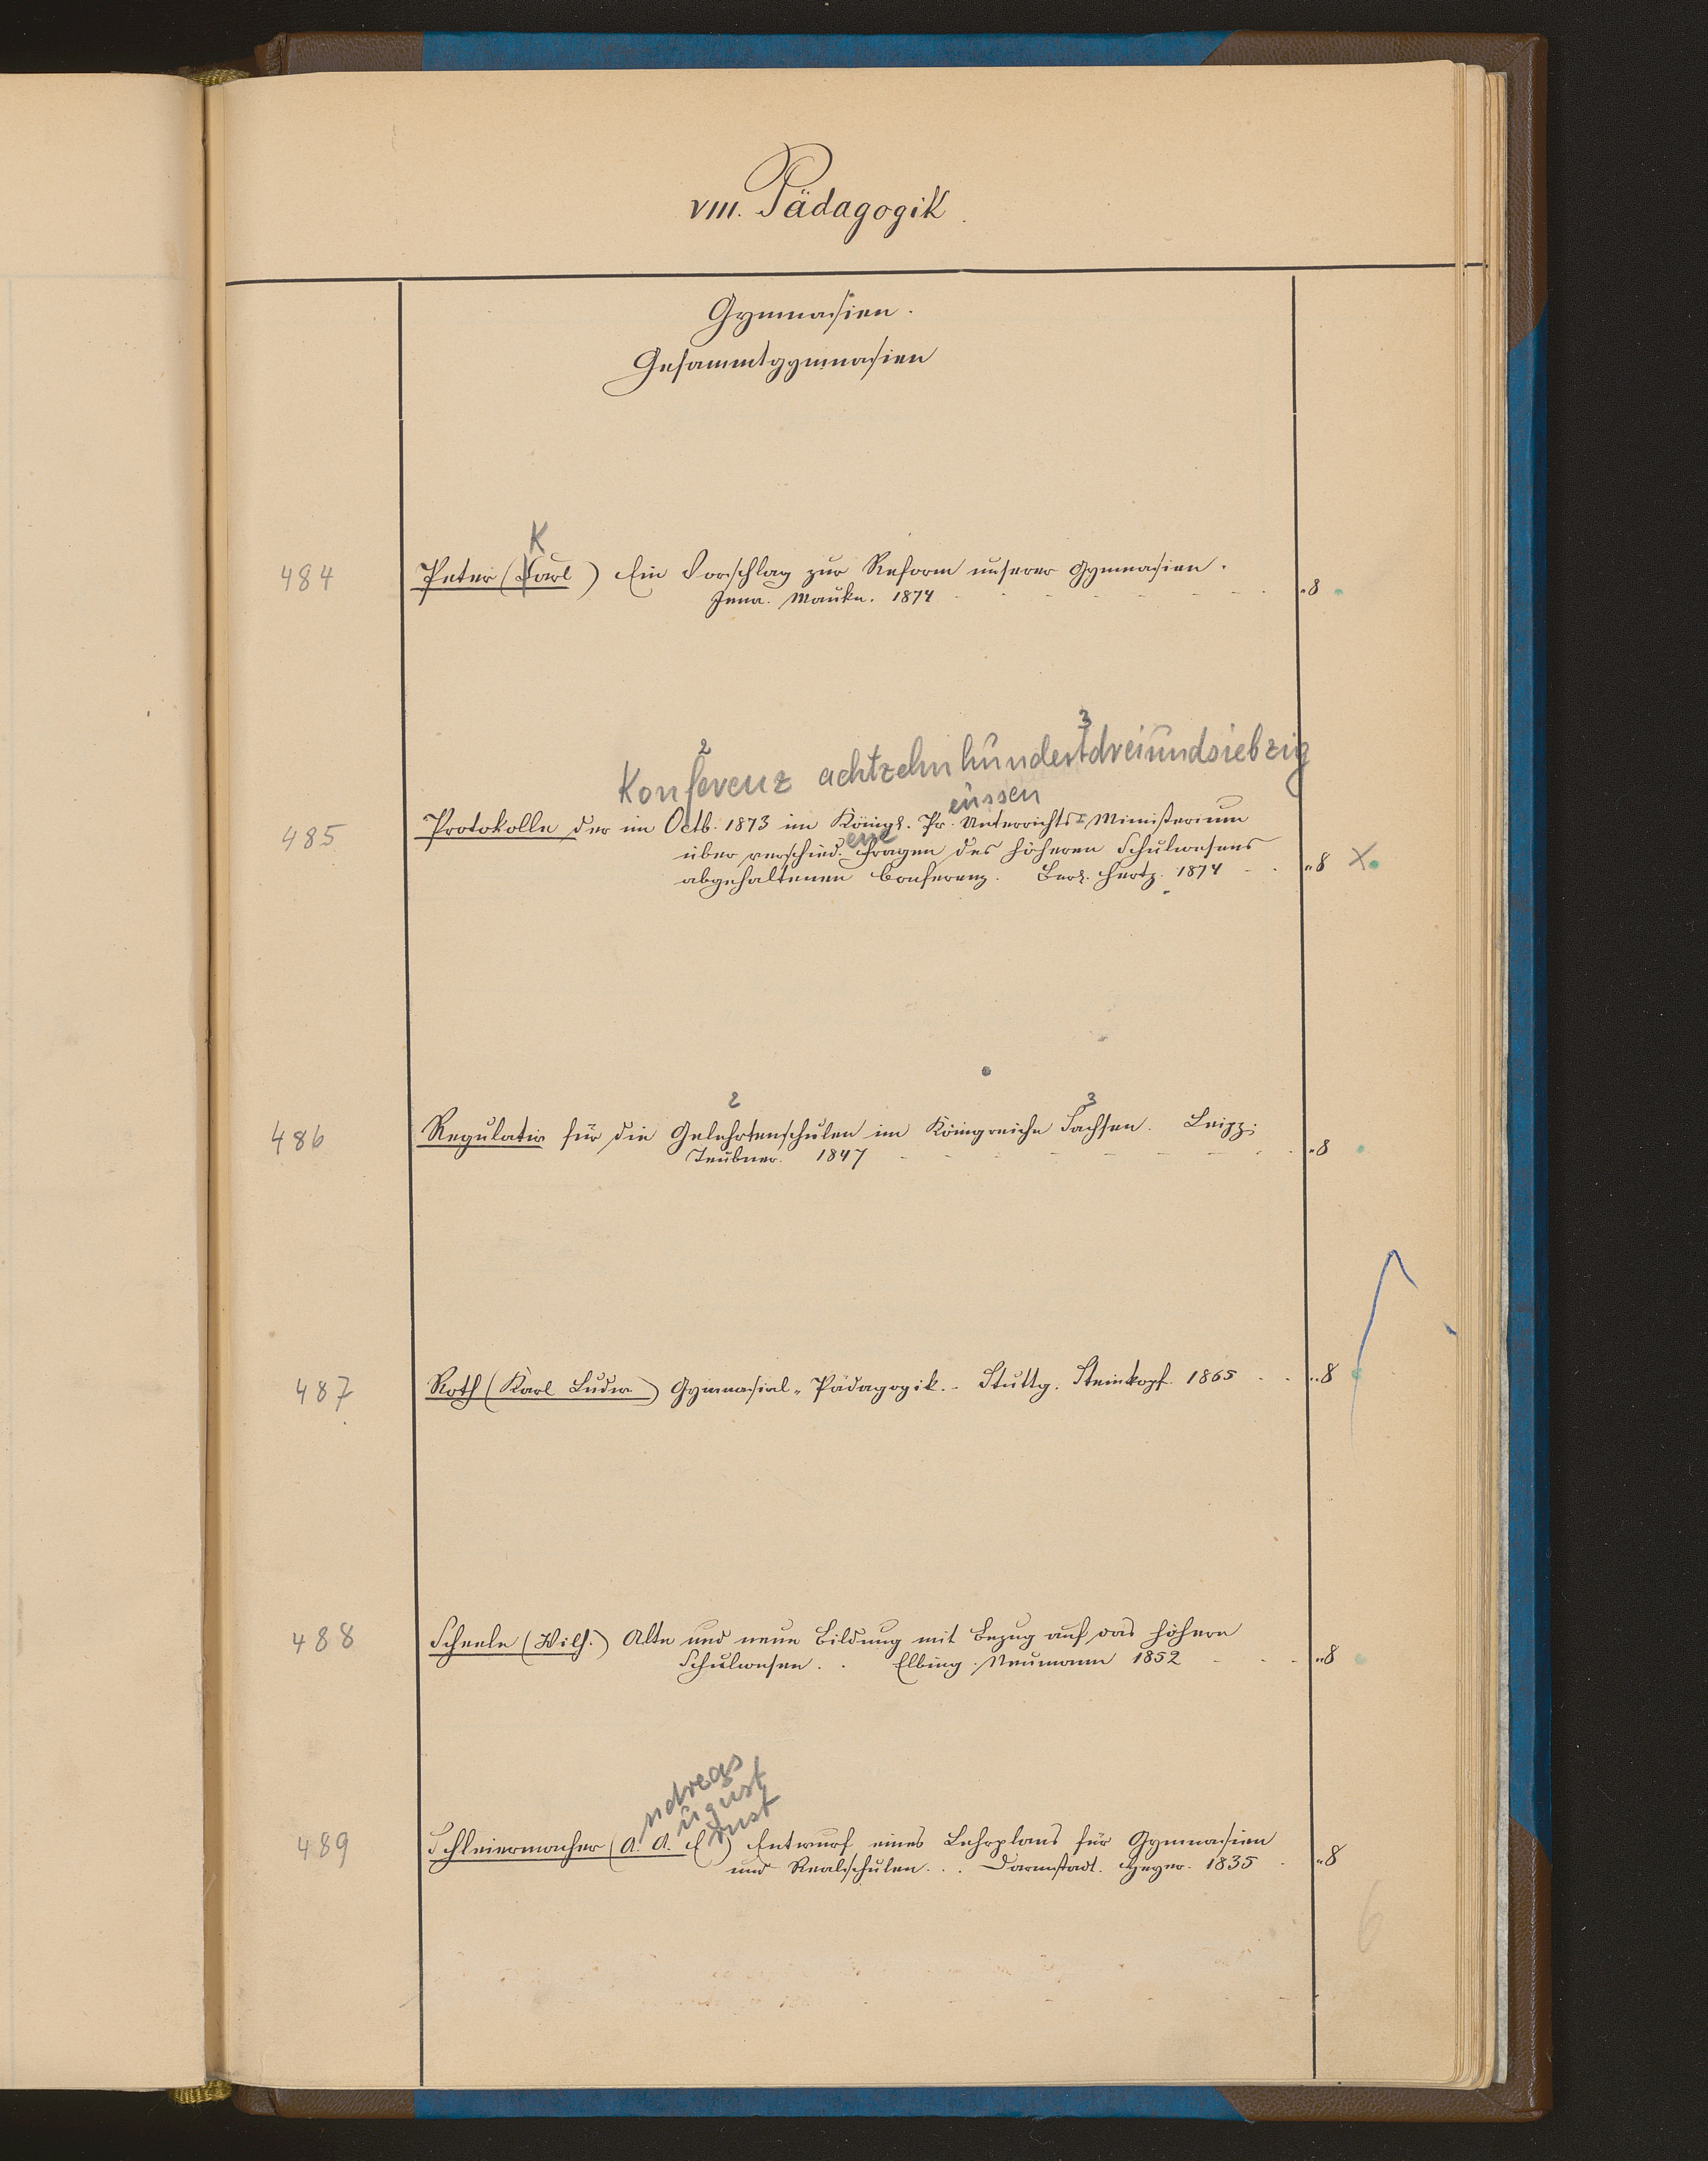 VIII. Pädagogik.
Gymnasien.
Gesammtgymnasien
K
484 Peter (Carl) Ein Vorschlag zur Reform unserer Gymnasien.
Jena. Mauke. 1874 8
2 3
Konferenz achtzehnhundertdreiundsiebzig
eussen
485 Protokolle der im Octb. 1873 im Königl. Pr. Unterrichts-Ministerium
ene
über verschied. Fragen des höheren Schulwesens
abgehaltenen Conferenz. Berl. Hertz. 1874 8 x
2 3
486 Regulativ für die Gelehrtenschulen im Königreiche Sachsen. Leipz.
Teubner. 1847 8
487 Roth (Karl Ludw.) Gymnasial-Pädagogik. Stuttg. Steinkopf. 1865 8
488 Scheele (Wilh.) Alte und neue Bildung mit Bezug auf das höhere
Schulwesen. Elbing. Neumann 1852 8
ndreas
ugust
rnst
489 Schleiermacher (A. A. E) Entwurf eines Lehrplans für Gymnasien
und Realschulen... Darmstadt. Heyer. 1835 8
6